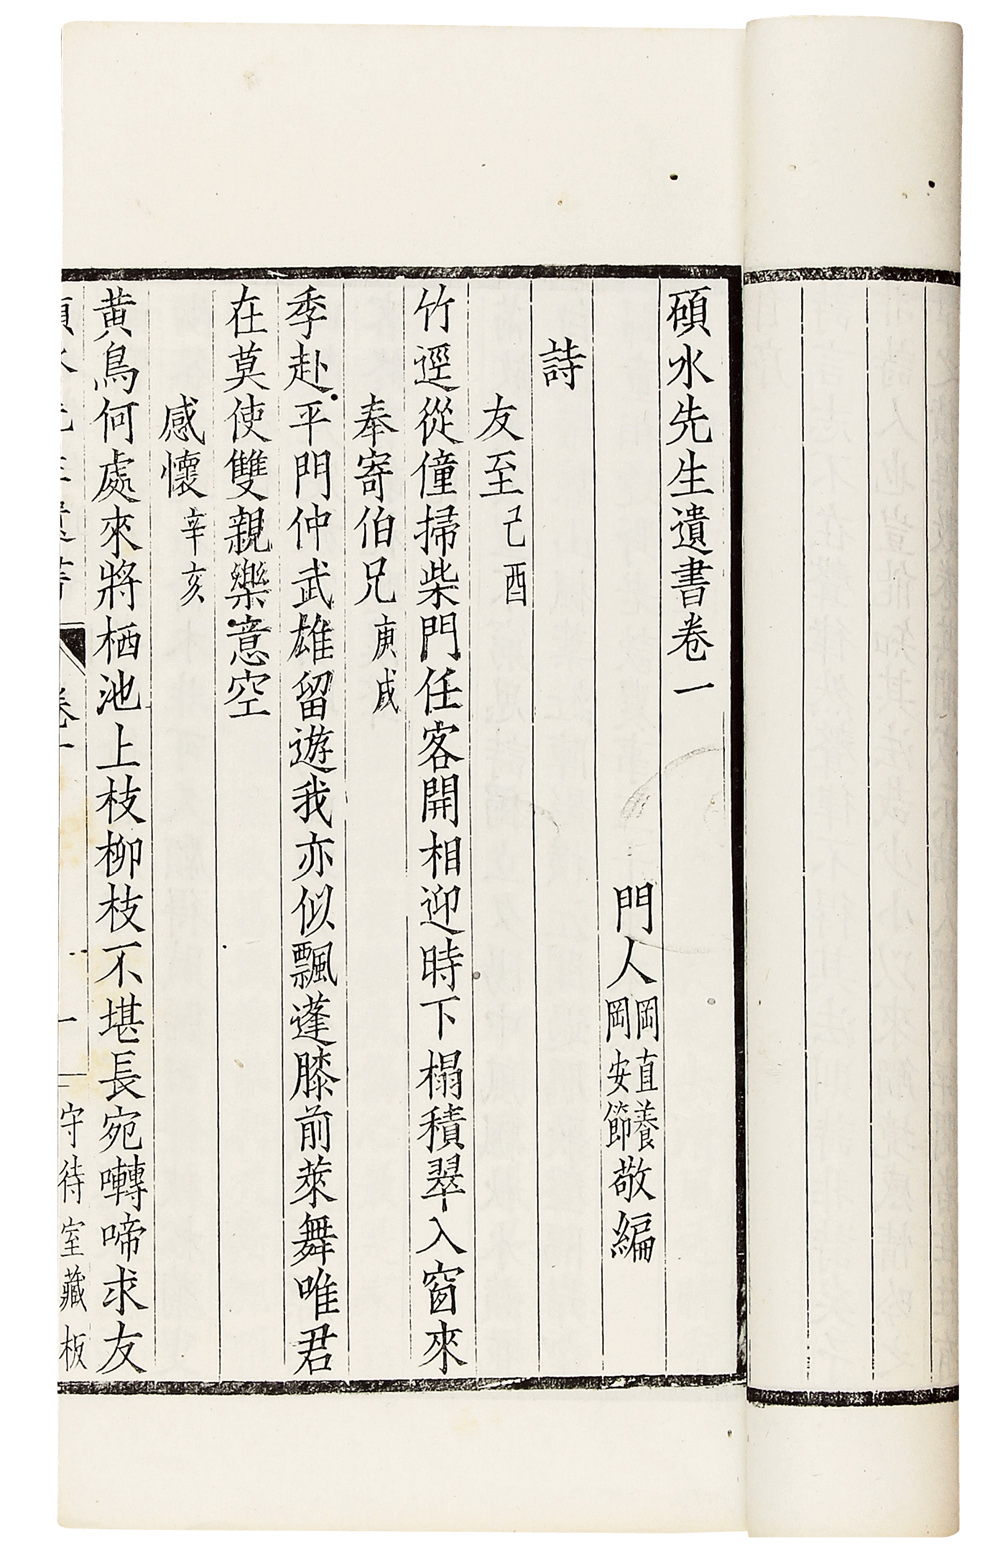 碩水先生遺書卷一
門人岡直養岡安節敬編
詩
友至己酉
竹逕從僮掃柴門任客開相迎時下榻積翠入窗來
奉寄伯兄庚戌
季赴平門仲武雄留遊我亦似飄蓬膝前萊舞唯君
在莫使雙親樂意空
感懷辛亥
黄鳥何處來將栖池上枝柳枝不堪長宛囀啼求友
卷一
一
守待室藏板